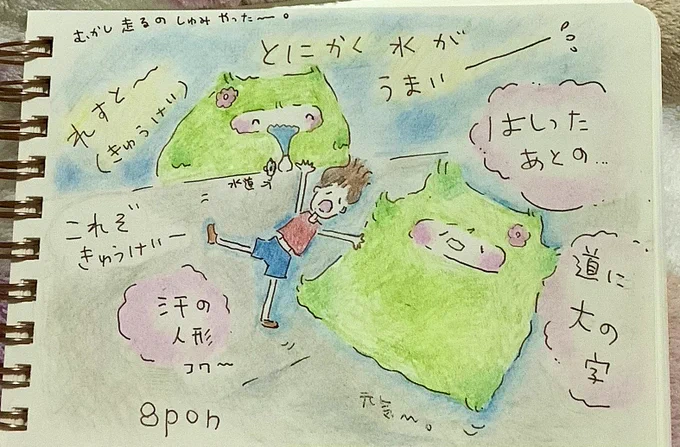 むかし走るの しゅみ やった〜。
とにかく 水が
うまい
れすと〜
(きゅうけい)
はしった
あとの…
水道
これぞ
きゅうけいー
道に
大の
字
汗の
人形
コワ〜
元気〜。
8pon